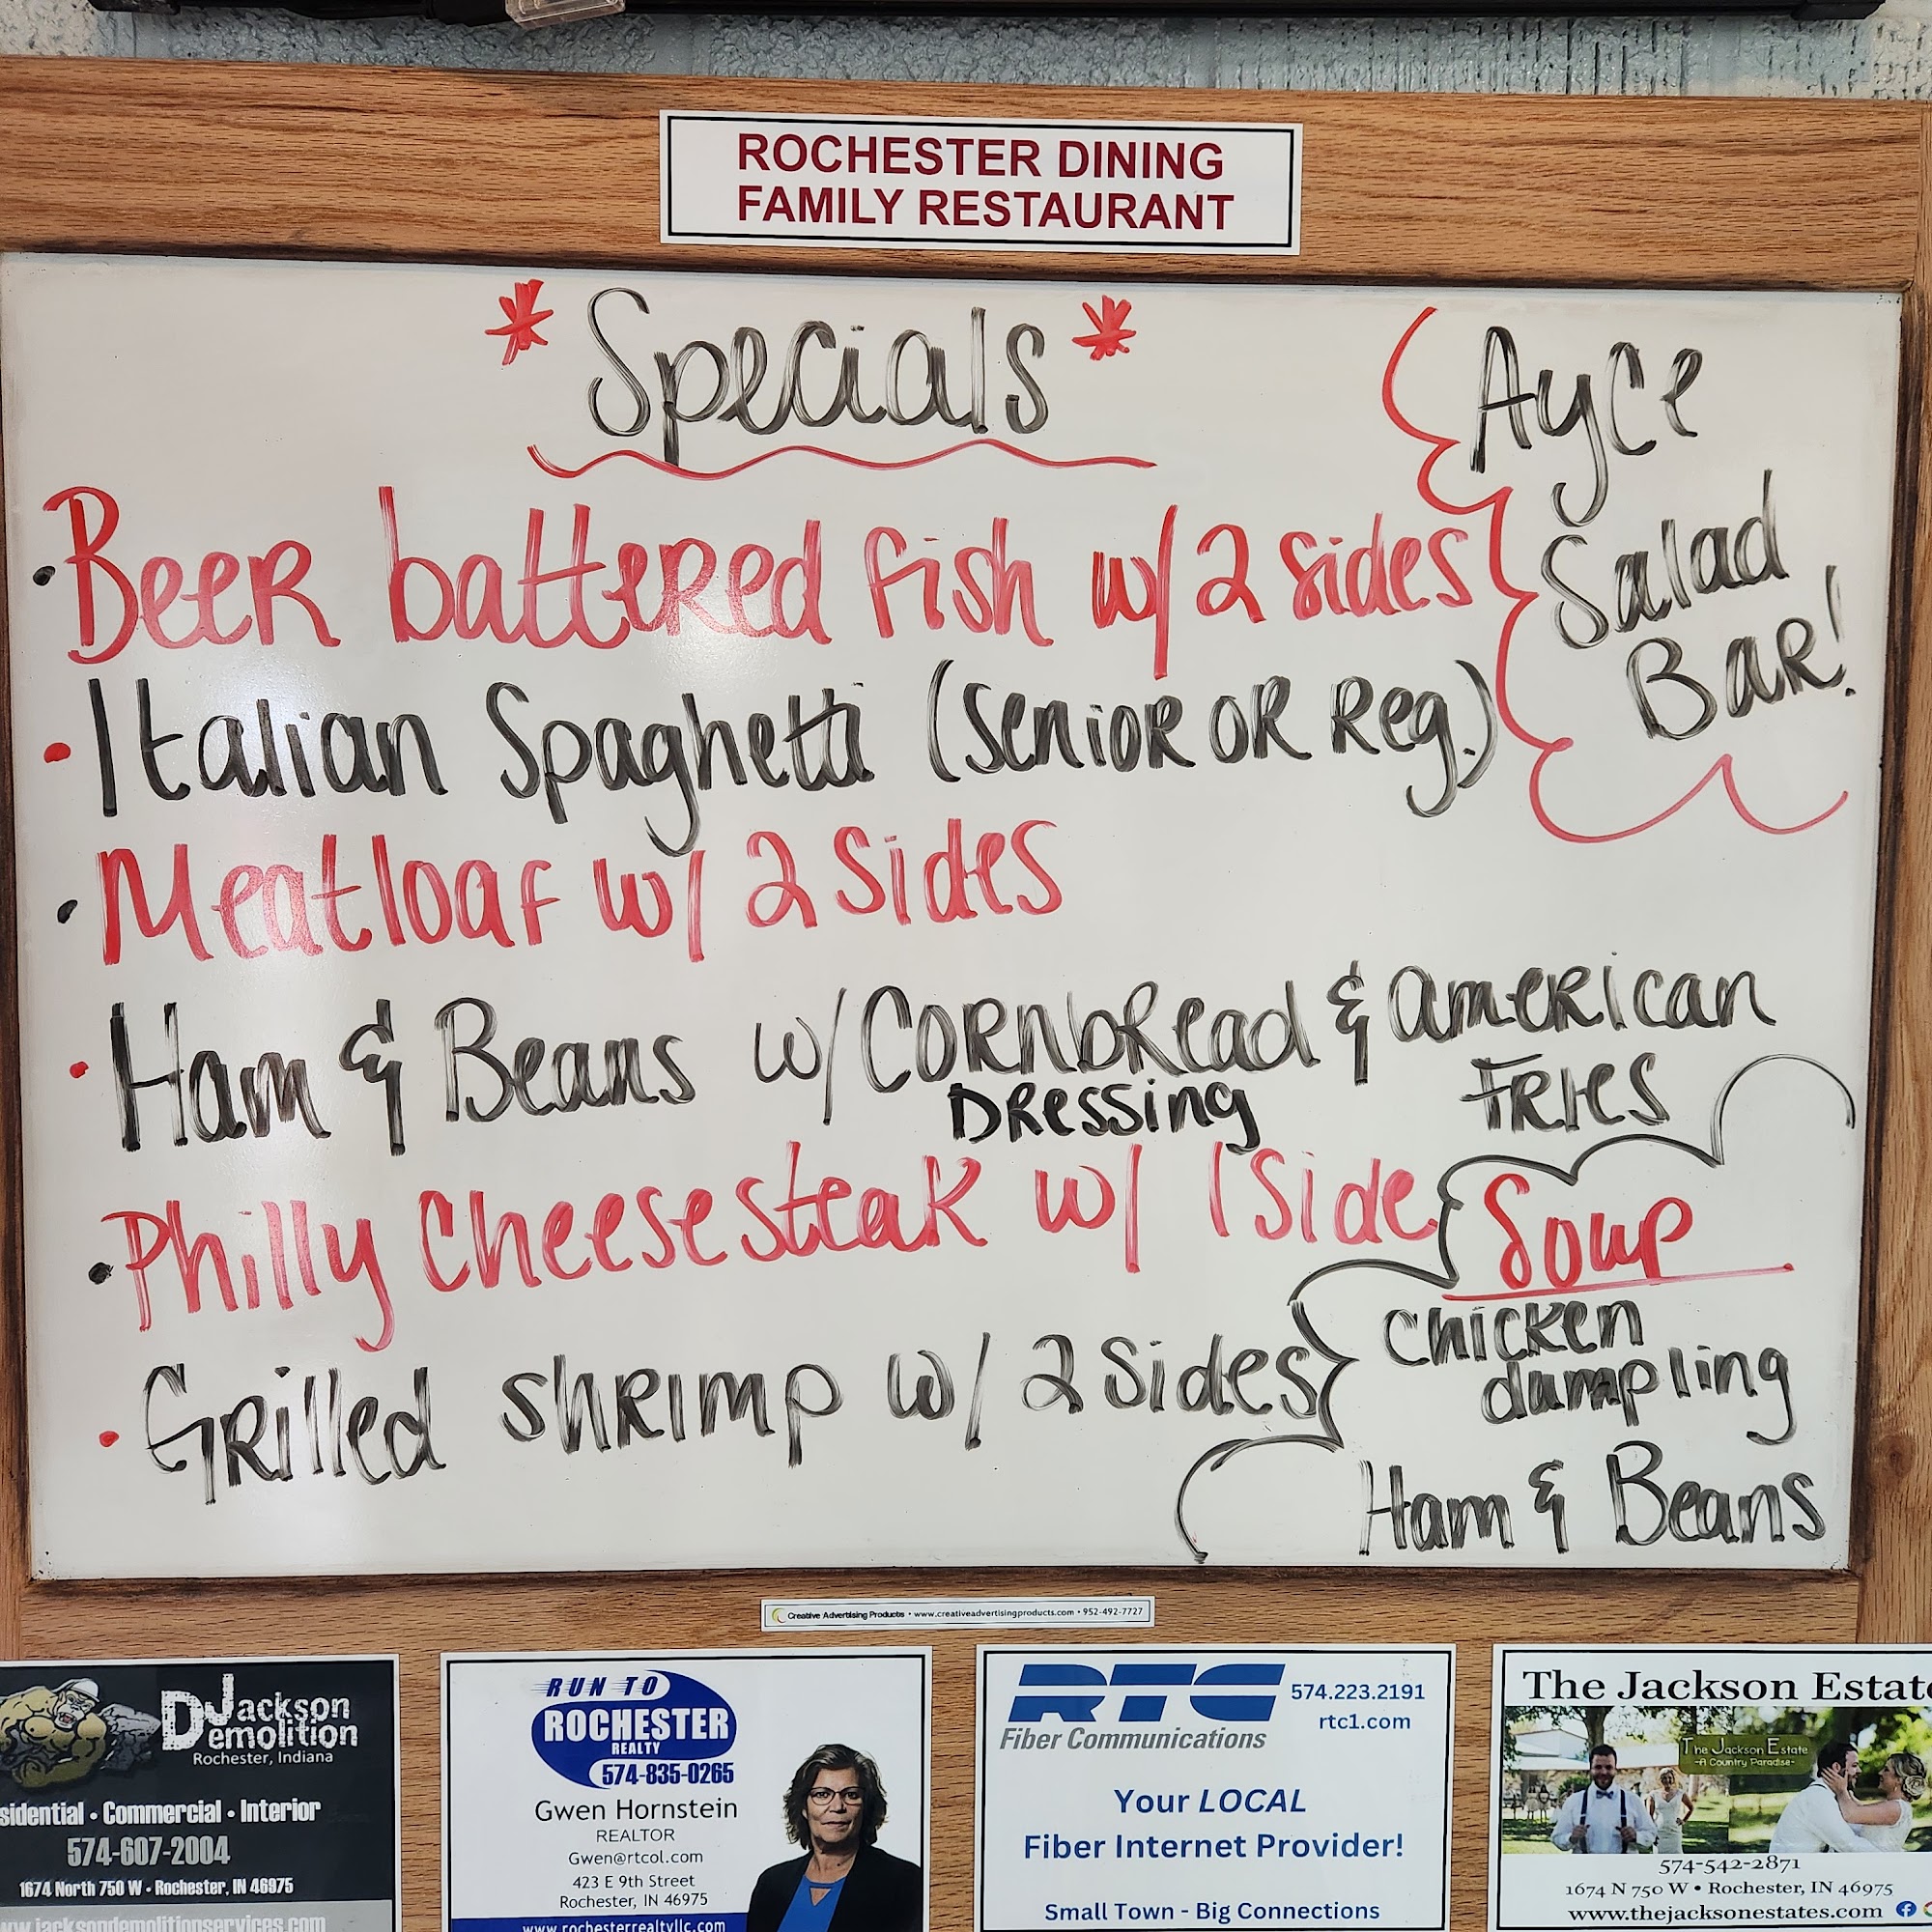 ROCHESTER DINING
FAMILY RESTAURANT
* Specials *
Ayce
Salad
BAR!
• Beer battered fish w/ 2 sides
• Italian Spaghetti (senior OR Reg.)
• Meatloaf w/ 2 sides
• Ham & Beans w/ CORNbRead & AMERICAN
DRessing
FRIES
• Philly Cheesesteak w/ 1 side
• Grilled shRIMP w/ 2 sides
Soup
Chicken
dumpling
Ham & Beans
Creative Advertising Products • www.creativeadvertisingproducts.com • 952-492-7727
DJackson
Demolition
Rochester, Indiana
sidential • Commercial • Interior
574-607-2004
1674 North 750 W • Rochester, IN 46975
ww.jacksondemolitionservices.com
RUN TO
ROCHESTER
REALTY
574-835-0265
Gwen Hornstein
REALTOR
Gwen@rtcol.com
423 E 9th Street
Rochester, IN 46975
www.rochesterrealtyllc.com
RTC
Fiber Communications
574.223.2191
rtc1.com
Your LOCAL
Fiber Internet Provider!
Small Town - Big Connections
The Jackson Estate
The Jackson Estate
-A Country Paradise-
574-542-2871
1674 N 750 W • Rochester, IN 46975
www.thejacksonestates.com